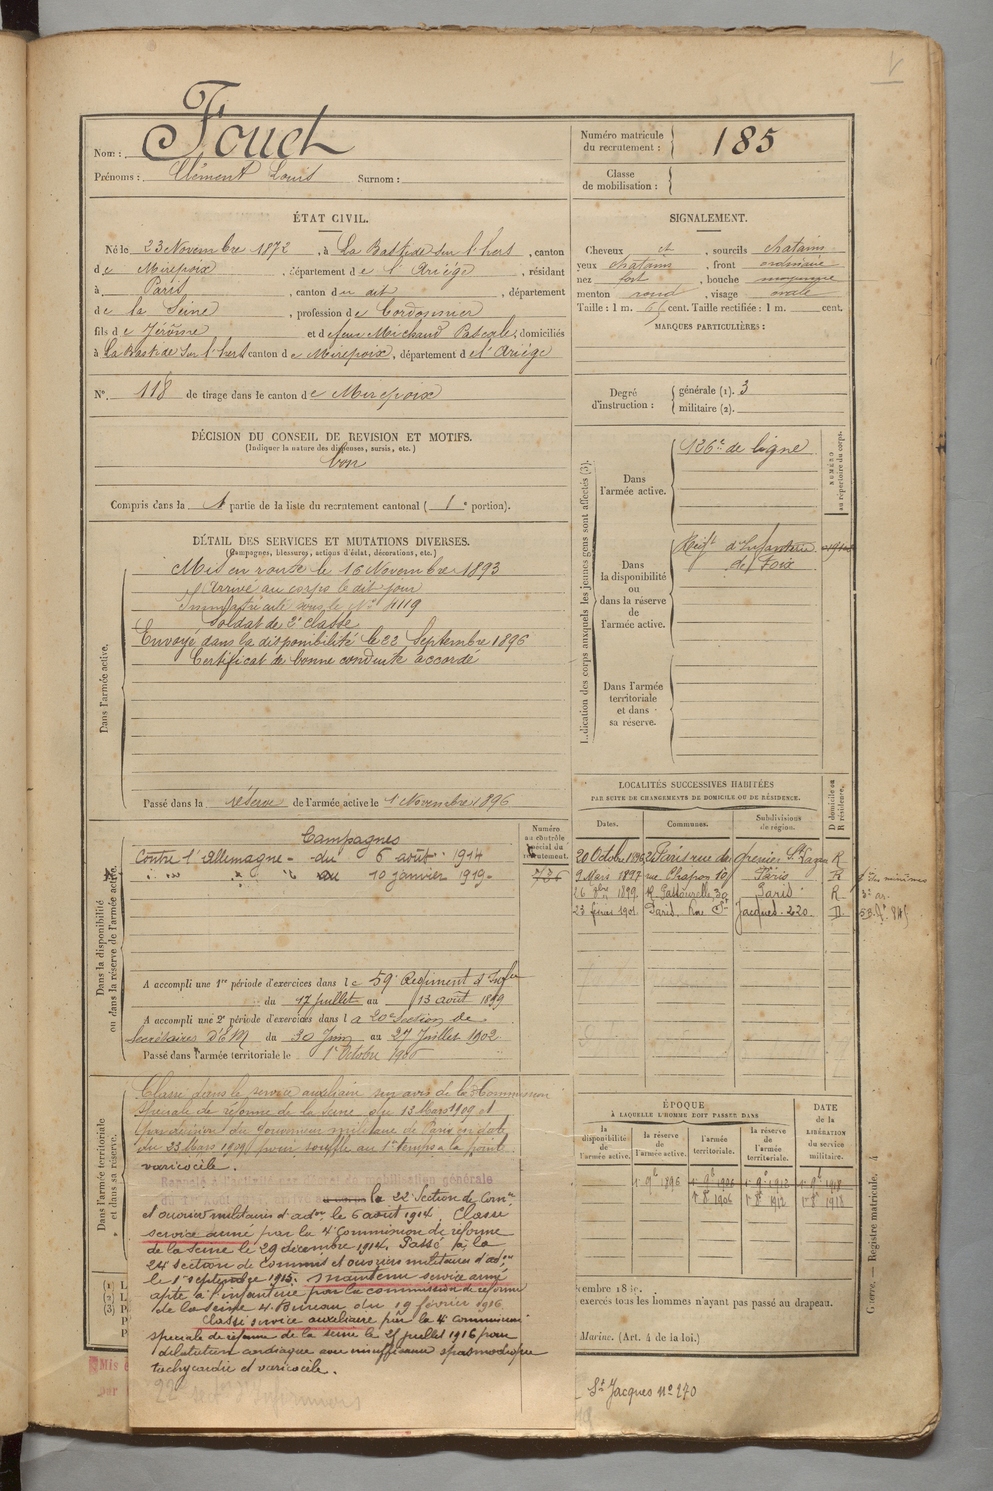 Nom : Fouet
Prénoms : Clément Louis Surnom :
Numéro matricule du recrutement : 185
Classe de mobilisation :
ÉTAT CIVIL.
Né le 23 Novembre 1872, à La Bastide sur l'hers, canton
de Mirepoix, département de l'Ariége, résidant
à Paris, canton du dit, département
de la Seine, profession de Cordonnier
fils de Jérôme et de feue Michaud Pascale, domiciliés
à La Bastide sur l'hers canton de Mirepoix, département de l'Ariége
N° 118 de tirage dans le canton de Mirepoix
SIGNALEMENT.
Cheveux et, sourcils chatains
yeux chatains, front ordinaire
nez fort, bouche moyenne
menton rond, visage ovale
Taille : 1 m. cent. Taille rectifiée : 1 m. cent.
MARQUES PARTICULIÈRES :
Degré d'instruction : générale (1). 3
militaire (2).
DÉCISION DU CONSEIL DE REVISION ET MOTIFS.
(Indiquer la nature des dispenses, sursis, etc.)
bon
Compris dans la 1 partie de la liste du recrutement cantonal (1e portion).
DÉTAIL DES SERVICES ET MUTATIONS DIVERSES.
(Campagnes, blessures, actions d'éclat, décorations, etc.)
Dans l'armée active.
Mis en route le 16 Novembre 1893
Arrivé au corps le dit jour
Immatriculé sous le N° 4119
Soldat de 2e classe
Envoyé dans la disponibilité le 22 Septembre 1896
Certificat de bonne conduite accordé
Passé dans la réserve de l'armée active le 1 Novembre 1896
Indication des corps auxquels les jeunes gens sont affectés (3).
NUMÉRO au répertoire du corps.
Dans l'armée active.
126e de ligne
Dans la disponibilité ou dans la réserve de l'armée active.
Régt d'Infanterie
de Foix
Dans l'armée territoriale et dans sa réserve.
Dans la disponibilité ou dans la réserve de l'armée active.
Numéro au contrôle spécial du recrutement.
Campagnes
Contre l'Allemagne - du 6 août 1914
au 10 janvier 1919
A accompli une 1re période d'exercices dans le 59e Régiment d'Infie
du 17 juillet au 13 août 1899
A accompli une 2e période d'exercices dans la 20e Section de
Secrétaires d'EM du 30 Juin au 27 Juillet 1902
Passé dans l'armée territoriale le 1er Octobre 1906
LOCALITÉS SUCCESSIVES HABITÉES
PAR SUITE DE CHANGEMENTS DE DOMICILE OU DE RÉSIDENCE.
D domicile ou R résidence.
Dates. Communes. Subdivisions de région.
20 Octobre 1896 Paris rue du Grenier St Lazare R
9 Mars 1897 rue Chapon 10 Paris R
26 9bre 1899 R. Pastourelle, 30 Paris R
23 février 1901 Paris. Rue St Jacques. 220 D
Dans l'armée territoriale et dans sa réserve.
Classé dans le service auxiliaire sur avis de la Commission
Spéciale de réforme de la Seine du 13 Mars 1909 et
par décision du Gouverneur militaire de Paris en date
du 23 Mars 1909 pour souffle au 1er temps à la pointe
varicocèle.
Rappelé à l'activité par décret de mobilisation générale
la 22e Section de Comis
et ouvriers militaires d'admon le 6 août 1914. Classé
service armé par la 4e Commission de réforme
de la Seine le 29 décembre 1914. Passé à la
24e section de Commis et ouvriers militaires d'admon
le 1er septembre 1915. maintenu service armé
apte à l'infanterie par la commission de réforme
de la Seine 4e Bureau du 19 février 1916
Classé service auxiliaire par la 4e commission
spéciale de réforme de la Seine le 25 juillet 1916 pour
dilatation cardiaque avec insuffisance spasmodique
tachycardie et varicocèle.
22e section d'Infirmiers
ÉPOQUE
À LAQUELLE L'HOMME DOIT PASSER DANS
DATE DE LA LIBÉRATION du service militaire.
la disponibilité de l'armée active. la réserve de l'armée active. l'armée territoriale. la réserve de l'armée territoriale.
exercés tous les hommes n'ayant pas passé au drapeau.
Marine. (Art. 4 de la loi.)
Guerre. — Registre matricule. A
Mis
par
St Jacques n° 270